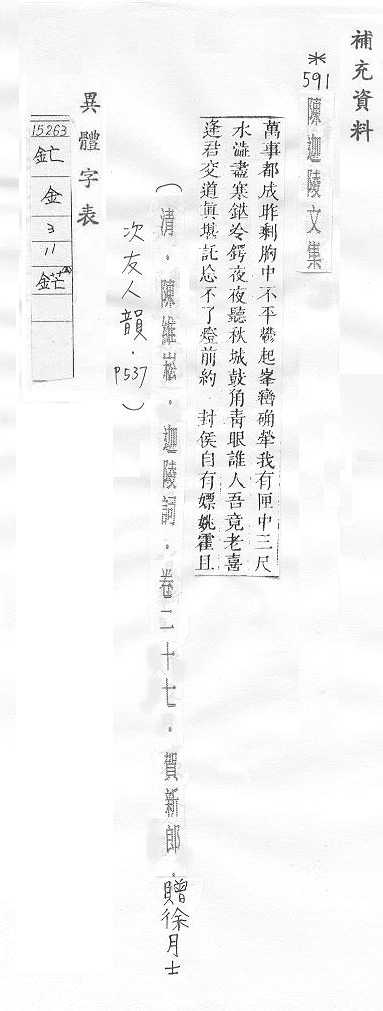 補充資料
*591 陳迦陵文集
萬事都成昨剩胸中不平起峯巒确犖我有匣中三尺
水澁盡寒釯冷鍔夜夜聽秋城鼓角靑眼誰人吾竟老喜
逢君交道眞堪託忘不了燈前約 封侯自有嫖姚霍且
(清。陳維崧。迦陵詞。卷二十七。賀新郎。贈徐月士
次友人韻.P537)
異體字表
15263
釯
金
3
11
鋩